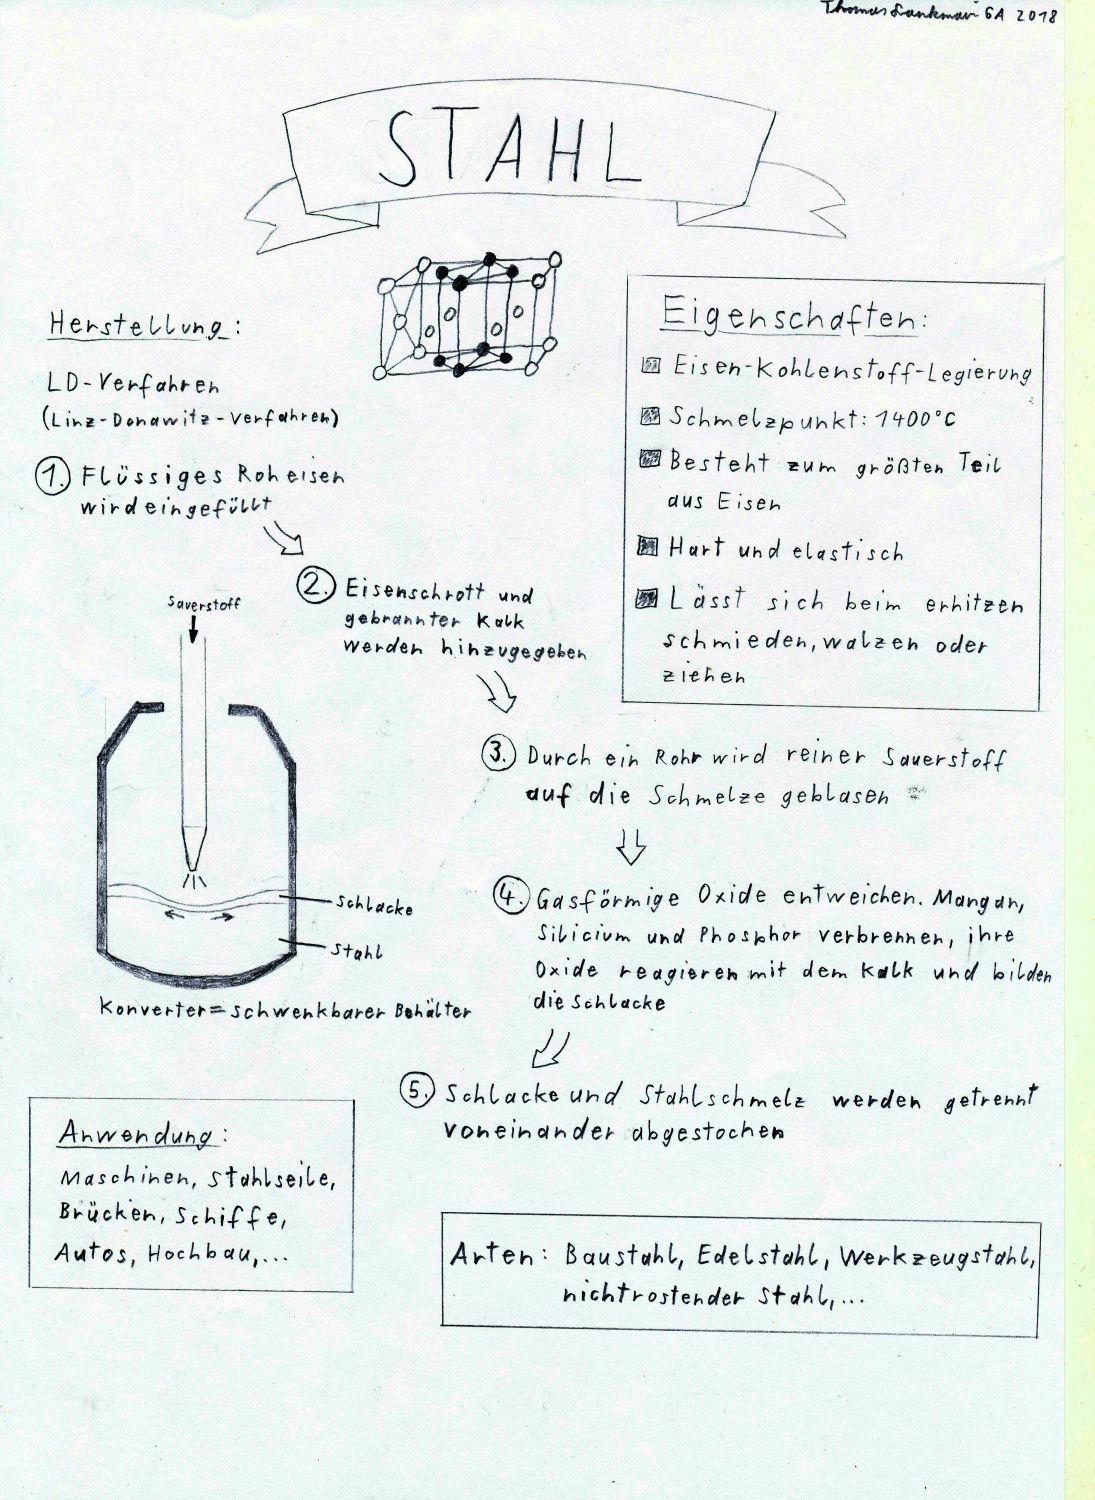 Thomas 6A 2018
STAHL
Herstellung:
LD-Verfahren
(Linz-Donawitz-Verfahren)
1. Flüssiges Roheisen
wird eingefüllt
2. Eisenschrott und
gebrannter Kalk
werden hinzugegeben
Eigenschaften:
Eisen-Kohlenstoff-Legierung
Schmelzpunkt: 1400°C
Besteht zum größten Teil
aus Eisen
Hart und elastisch
Lässt sich beim erhitzen
schmieden, walzen oder
ziehen
3. Durch ein Rohr wird reiner Sauerstoff
auf die Schmelze geblasen
4. Gasförmige Oxide entweichen. Mangan,
Silicium und Phosphor verbrennen, ihre
Oxide reagieren mit dem Kalk und bilden
die Schlacke
5. Schlacke und Stahlschmelz werden getrennt
voneinander abgestochen
Sauerstoff
Schlacke
Stahl
Konverter = schwenkbarer Behälter
Anwendung:
Maschinen, Stahlseile,
Brücken, Schiffe,
Autos, Hochbau,...
Arten: Baustahl, Edelstahl, Werkzeugstahl,
nichtrostender Stahl,...